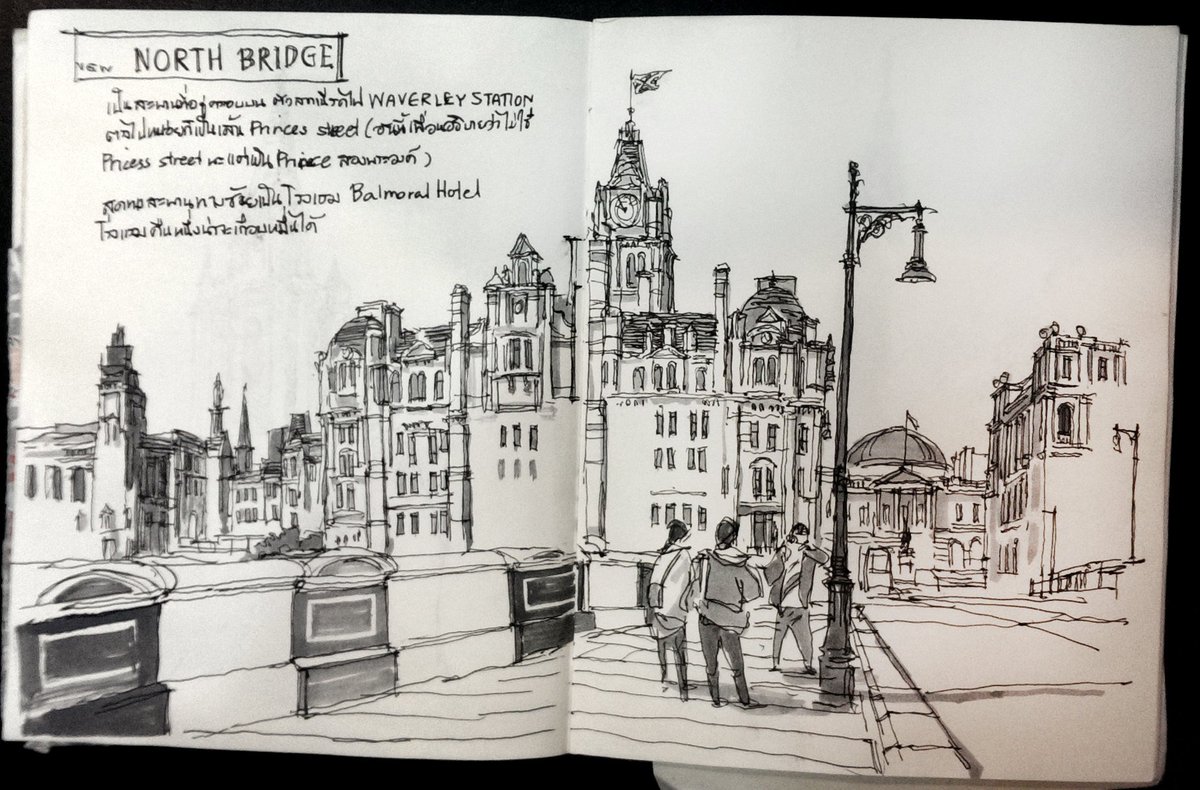 NEW NORTH BRIDGE
เป็นสะพานที่อยู่ครอบบน ตัวสถานีรถไฟ WAVERLEY STATION
ตรงไปหน่อยก็เป็นเส้น Princes street (อันนี้เพื่อนอธิบายว่าไม่ใช่
Pricess street นะแต่เป็น Prince สองพระองค์ )
สะพาน ซ้ายเป็นโรงแรม Balmoral Hotel
โรงแรมคืนหนึ่งน่าจะเกือบหมื่นได้